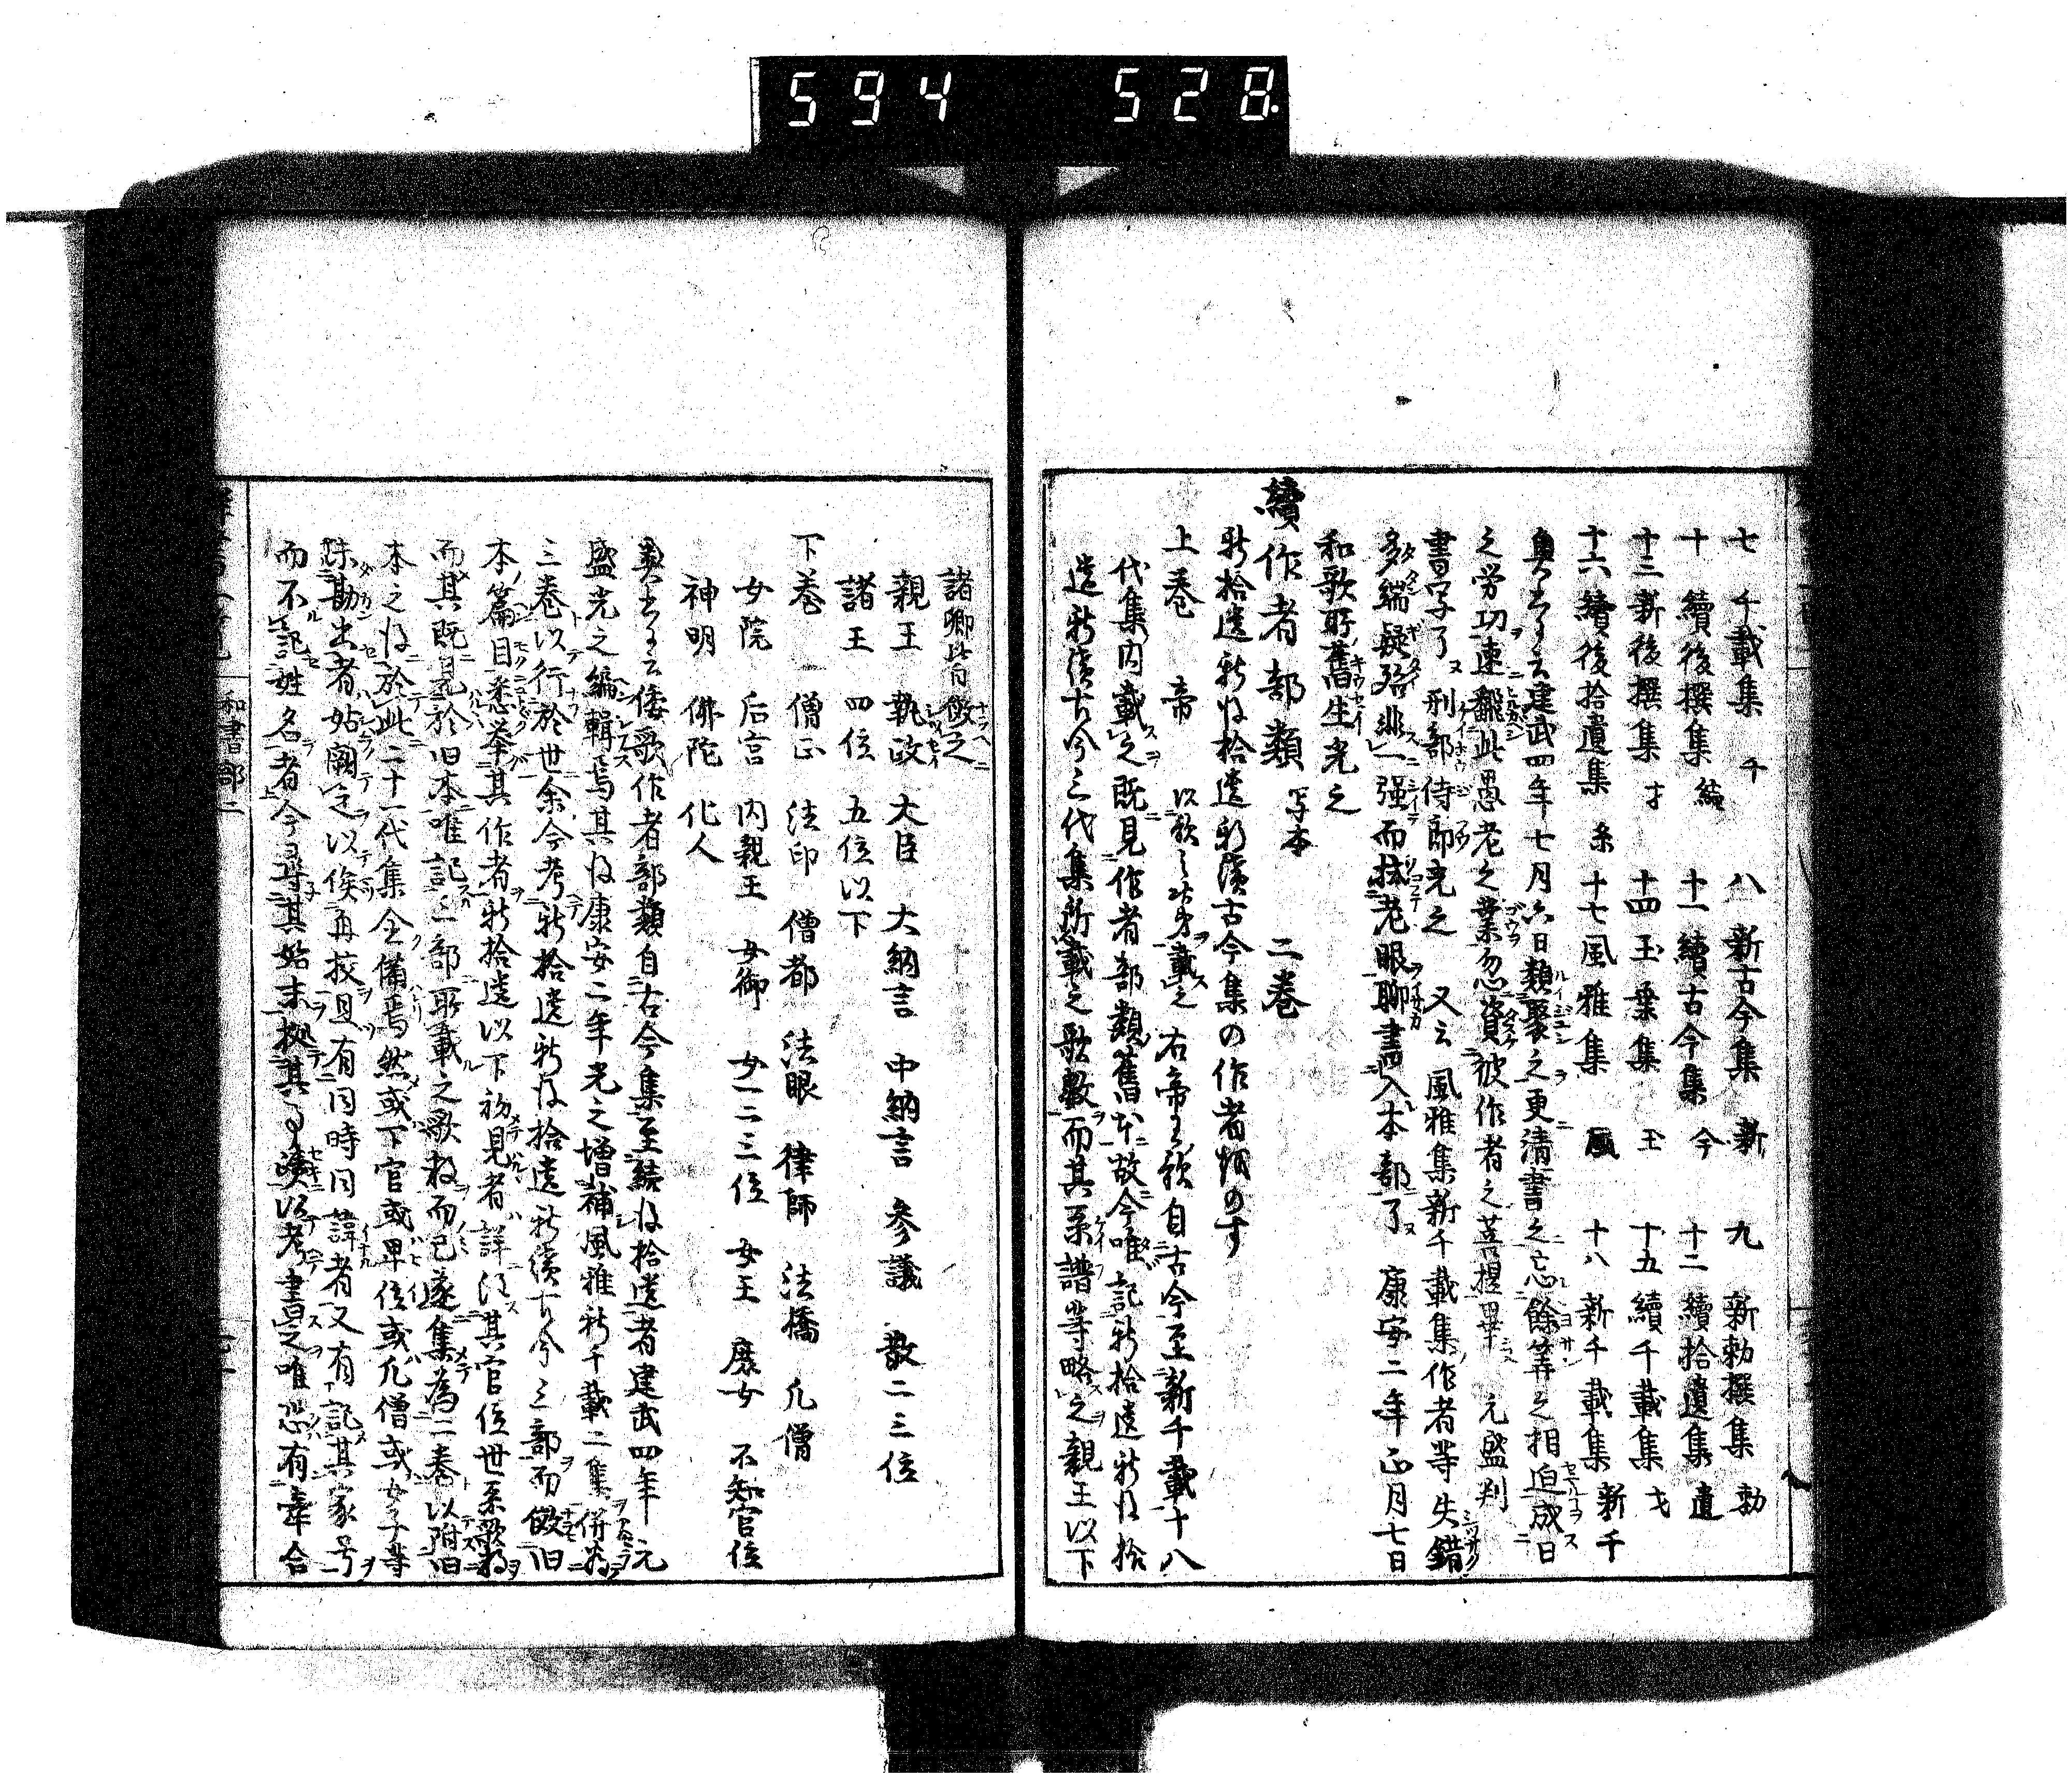 594 528
七 千載集 千 八 新古今集 新 九 新勅撰集 勅
十 續後撰集 續 十一續古今集 今 十二 續拾遺集 遺
十三新後撰集 才 十四玉葉集 玉 十五續千載集 才
十六續後拾遺集 糸 十七風雅集 風 十八新千載集 新千
奥書云建武四年七月六日類聚之更清書之忘餘筭之相迫成日
之労功速飜此愚老之業勿忽資彼作者之菩提畢 元盛判
書写了 刑部侍郎光之 又云 風雅集新千載集作者等失錯
多端疑殆非一强而拭老眼聊書入本部了 康安二年正月七日
和歌所舊生光之
續作者部類 写本 二巻
新拾遺新後拾遺新續古今集の作者
上巻 帝 以歌之次第載之 右帝王歌自古今至新千載十八
代集内載之既見作者部類舊本故今唯記新拾遺新後拾
遺新續古今三代集所載之歌數而其系譜等略之親王以下
諸卿皆倣之
親王 執政 大臣 大納言 中納言 参議 散二三位
諸王 四位 五位以下
下巻 僧正 法印 僧都 法眼 律師 法橋 凡僧
女院 后宮 内親王 女御 女二三位 女王 庶女 不知官位
神明 佛陀 化人
奥書云倭歌作者部類自古今集至續後拾遺者建武四年元
盛光之編輯焉其後康安二年光之増補風雅新千載二集併為
三巻以行於世余今考新拾遺新後拾遺新續古今三部而倣旧
本篇目悉举其作者新拾遺以下初見者詳注其官位世系歌数
而其既見於旧本唯記三部所載之歌数而已遂集為二巻以附旧
本之後於此二十一代集全備焉然或下官或卑位或凡僧或女子等
難勘出者姑闕之以俟再挍且有同時同諱者又有記其家号
而不記姓名者今尋其始末挍其事蹟以考書之唯恐有牽合
和書部二